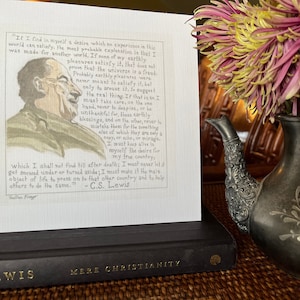 "If I find in myself a desire which no experience in this
world can satisfy, the most probable explanation is that I
was made for another world. If none of my earthly
pleasures satisfy it, that does not
prove that the universe is a fraud.
Probably earthly pleasures were
never meant to satisfy it, but
only to arouse it, to suggest
the real thing. If that is so, I
must take care, on the one
hand, never to despise, or be
unthankful for, these earthly
blessings, and on the other, never to
mistake them for the something
else of which they are only a
copy, or echo, or mirage.
I must keep alive in
myself the desire for
my true country,
which I shall not find till after death; I must never let it
get snowed under or turned aside; I must make it the main
object of life to press on to that other country and to help
others to do the same." - C.S. Lewis
EWIS MERE CHRISTIANITY